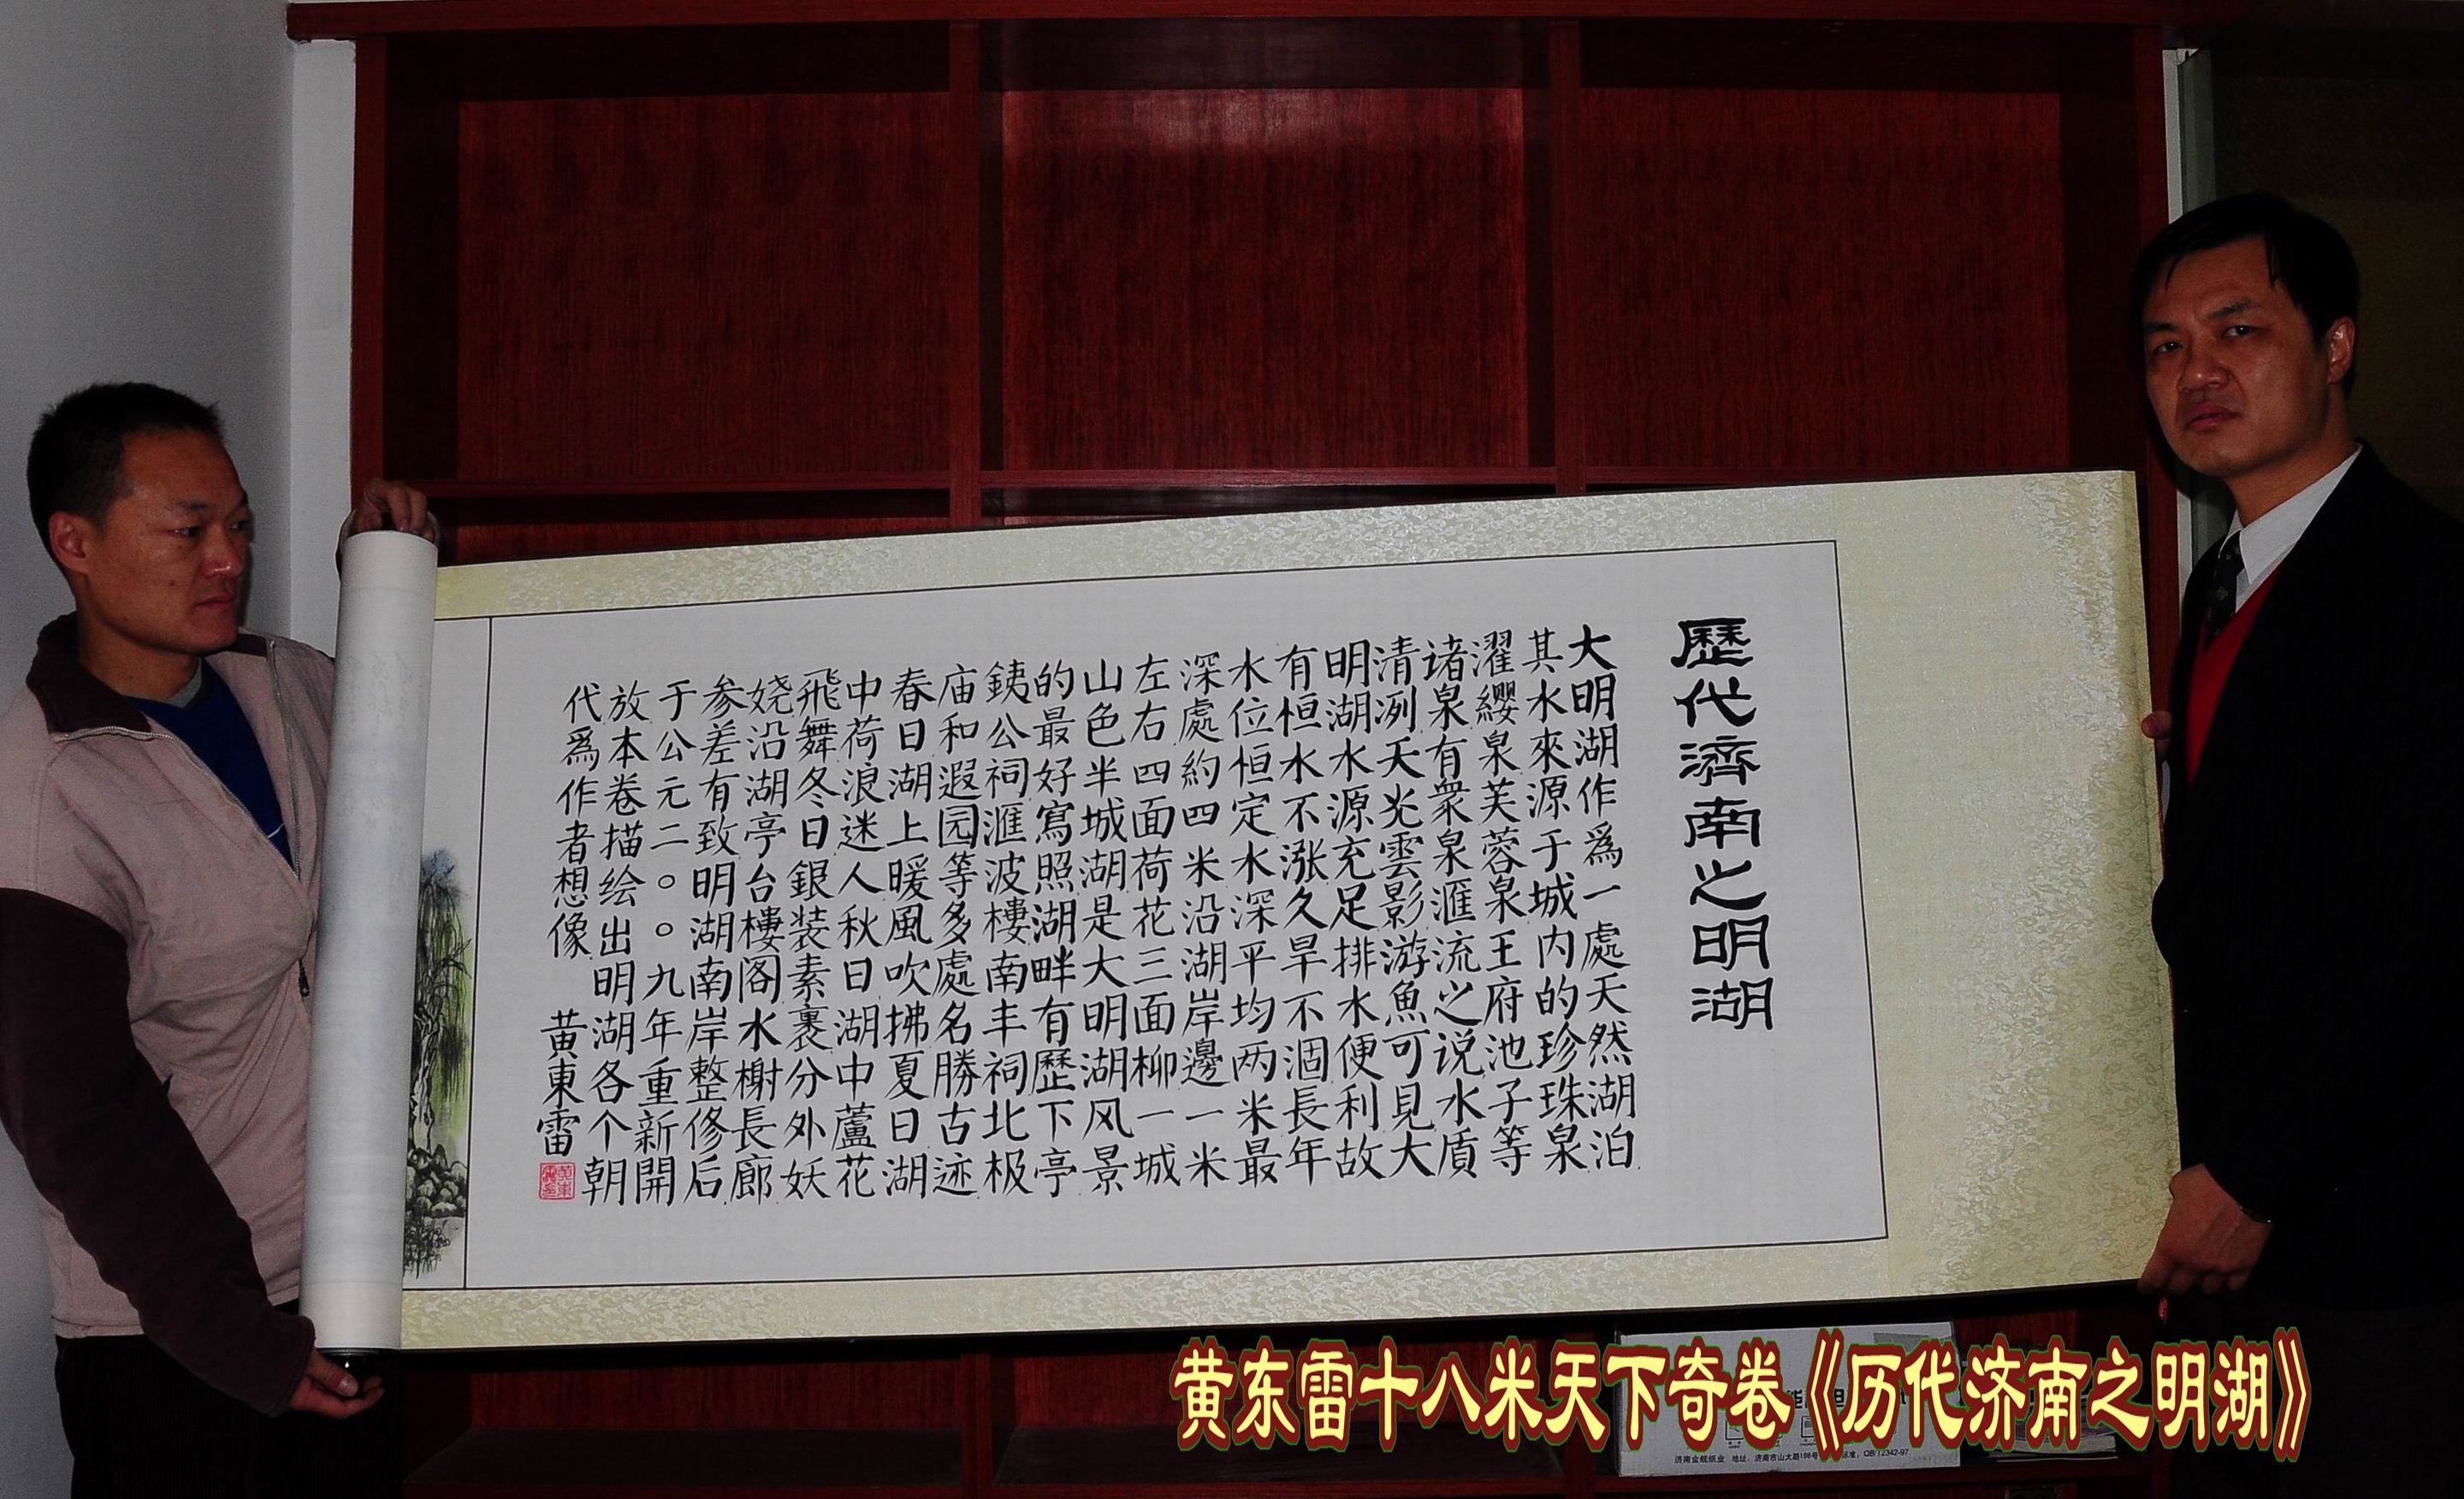 歷代濟南之明湖
大明湖作爲一處天然湖泊
其水來源于城内的珍珠泉
濯纓泉芙蓉泉王府池子等
诸泉有衆泉滙流之说水貭
清冽天光雲影游魚可見大
明湖水源充足排水便利故
有恒水不涨久旱不涸長年
水位恒定水深平均两米最
深處約四米沿湖岸邊一米
左右四面荷花三面柳一城
山色半城湖是大明湖风景
的最好寫照湖畔有歷下亭
銕公祠滙波樓南丰祠北极
庙和遐园等多處名勝古迹
春日湖上暖風吹拂夏日湖
中荷浪迷人秋日湖中蘆花
飛舞冬日銀装素裹分外妖
娆沿湖亭台樓阁水榭長廊
参差有致明湖南岸整修后
于公元二○○九年重新開
放本卷描绘出明湖各个朝
代爲作者想像
黄東雷
黄东雷十八米天下奇卷《历代济南之明湖》
地址：济南市山大路